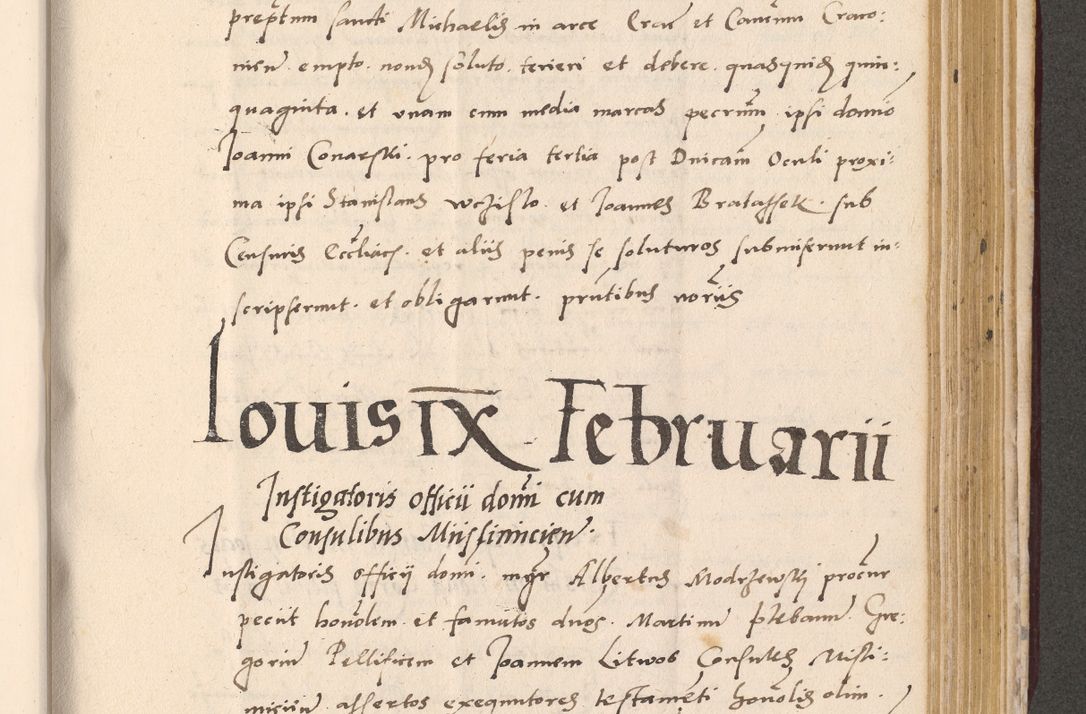 preptum sancti Michaelis in arce Crac et Canonum Craco:
nien empto. nondum soluto. teneri et debere. quasquidem quin:
quaginta. et unam cum media marcas pecuniarum ipsi domino
Joanni Conarski. pro feria tertia post Dnicam Oculi proxi:
ma ipsi Stanislaus et Joannes sub
Censuris Ecclīacis. et aliis penis se soluturos submiserunt in:
scripserunt. et obligarunt. pñtibus
Iouis IX Februarii
Instigatoris officii domi cum
Consulibus Mislimicien.
Instigatoris officij domi. mgr Albertus Modrzewskj procur
peciit honolem. et famatos duos. Martinum plebanum Gre:
gorium Pellificem et Joannem Litwos Consules Misli:
micien assertos exequutores testamenti honolis olim.